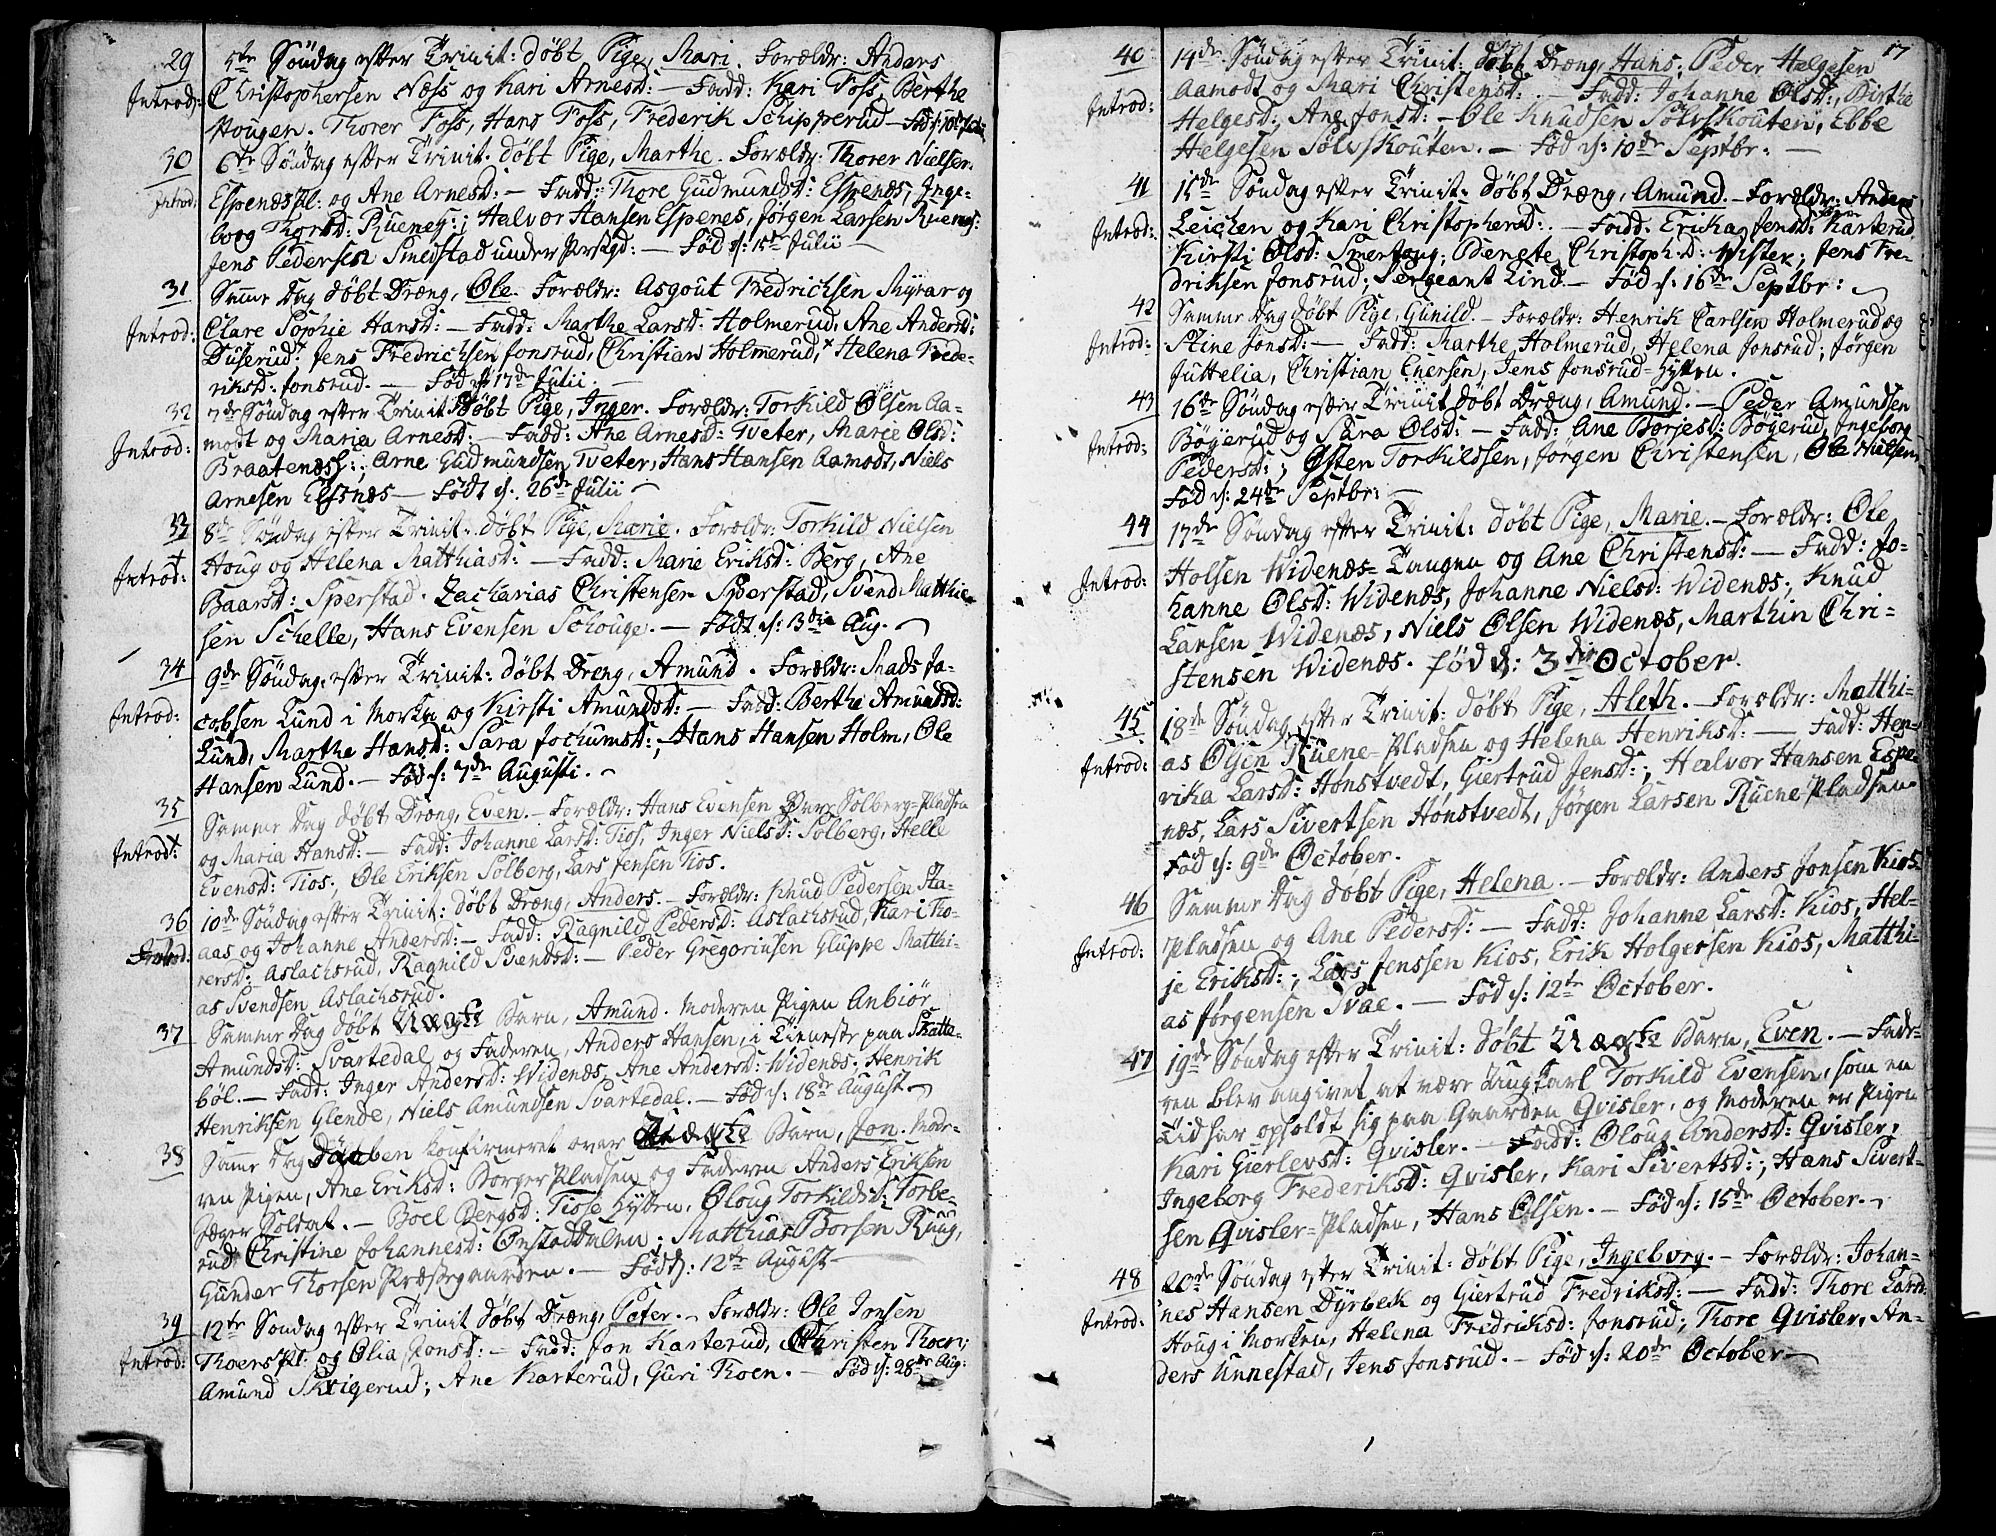 29
5te Söndag efter Trinit: döbt Pige, Mari. Forældr: Anders
Introd: Christophersen Næss og Kari Arnesd: — Fadd: Kari Foss, Berthe
Hougen. Thorer Foss, Hans Foss, Frederik Schipperud — Föd d: 10de Julii
30
6te Söndag efter Trinit. döbt Pige, Marthe. Forældr: Thorer Nielsen
Introd: Espenæspl: og Ane Arnesd: — Fadd: Thore Gudmundsd: Espenæs, Inge-
borg Thorsd: Rueney:; Halvor Hansen Espenes, Jörgen Larsen Rueney:
Jens Pedersen Smedstad under — Föd d: 15de Julii —
31
Samme Dag döbt Dræng, Ole. Forældr: Asgout Fredrichsen Myrar og
Introd: Clare Sophie Hansd: — Fadd: Marthe Larsd: Holmerud, Ane Andersd:
Duserud. Jens Fredrichsen Jonsrud, Christian Holmerud, Helena Frede-
riksd: Jonsrud. — Föd d: 17de Julii. —
32
7de Söndag efter Trinit: döbt Pige, Inger. Forældr: Torkild Olsen Aa-
Introd: modt og Maria Arnesd: — Fadd: Ane Arnesd: Tveter, Marie Olsd:
Braatenæss:; Arne Gudmundsen Tveter, Hans Hansen Aamodt, Niels
Arnesen Elsnæs — Födt d: 26de Julii —
33
8de Söndag efter Trinit. döbt Pige, Marie. Forældr: Torkild Nielsen
Introd: Houg og Helena Matthiasd: — Fadd: Marie Eriksd: Berg, Ane
Baarsd: Sperstad. Zacharias Christensen Sperstad, Svend Matthie-
sen Schelle, Hans Evensen Schouge. — Födt d: 3die Aug. —
34
9de Söndag efter Trinit: döbt Dreng, Amund. Forældr: Mads Ja-
Introd: cobsen Lund i Morka og Kirsti Amundsd: — Fadd: Berthe Amundsd:
Lund, Marthe Hansd: Sara Jochumsd:; Hans Hansen Holm, Ole
Hansen Lund. — Föd d: 7de Augusti. —
35
Samme Dag döbt Dræng, Even. — Forældr: Hans Evensen Solberg-pladsen
Introd: og Maria Hansd: — Fadd: Johanne Larsd: Tios, Inger Nielsd: Solberg, Helle
Evensd: Tios; Ole Eriksen Solberg, Lars Jensen Tios.
36
10de Söndag efter Trinit: döbt Dræng, Anders. — Forældr: Knud Pedersen Sta-
Introd: aas og Johanne Andersd: — Fadd: Ragnild Pedersd: Aslachsrud, Kari Tho-
rersd: Aslachsrud, Ragnild Svendsd: — Peder Gregoriusen Gluppe Matthi-
as Svendsen Aslachsrud.
37
Samme Dag döbt Uægte Barn, Amund. Moderen Pigen Anbiör
Amundsd: Svartedal og Faderen, Anders Hansen, i Tieneste paa Skatte-
böl. — Fadd: Inger Andersd: Widenæs, Ane Andersd: Widenæs. Henrik
Henriksen Glende, Niels Amundsen Svartedal. — Föd d: 18de August —
38
Samme Dag Daaben konfirmeret over Uægte Barn, Jon. Mode-
ren Pigen, Ane Eriksd: Borger Pladsen og Faderen Anders Eriksen
Jæger Soldat. — Boel Bergsd: Tiose Hytten, Oloug Torkildsd: Torbe-
rud Christine Johannesd: Onstaddalen; Matthias Borsen Ruug,
Gunder Thorsen Præstegaarden. — Född: 12te August —
39
12te Söndag efter Trinit döbt Dræng, Peter. — Forældr: Ole Jensen
Introd: Thoers Pl: og Olia Jonsd: — Fadd: Jon Karterud, Christen Thoen;
Amund Skrigerud; Ane Karterud, Guri Thoen. — Föd d: 28de Aug:
17
40
14de Söndag efter Trinit: döbt Dræng, Hans; Peder Helgesen
Introd: Aamodt og Mari Christensd: — Fadd: Johanne Olsd:, Birthe
Helgesd:, Ane Jonsd: — Ole Knudsen Sölvskouten, Ebbe
Helgesen Sölvskouten. — Föd d: 10de Septbr: —
41
15de Söndag efter Trinit. döbt Dræng, Amund. — Forældr: Anders
Introd: Leichen og Kari Christophersd: — Fadd: Erika Jensd: Karterud,
Kirsti Olsd: Smertoug; Benete Christophd: Wister; Jens Fre-
driksen Jonsrud; Sergeant Lind. — Föd d: 16de Septbr: —
42
Samme Dag döbt Pige, Gunild. — Forældr: Henrik Carlsen Holmerud og
Introd: Stine Jonsd: — Fadd: Marthe Holmerud, Helena Jonsrud; Jörgen
Juttelia, Christian Ehersen, Jens Jonsrud-Hytten.
43
16de Söndag efter Trinit döbt Dræng, Amund. — Peder Amundsen
Introd: Bögerud og Sara Olsd: — Fadd: Ane Borjesd: Bögerud, Ingeborg
Pedersd:; Østen Torkildsen, Jörgen Christensen, Ole Nielsen
Föd d: 24de Septbr: —
44
17de Söndag efter Trinit: döbt Pige, Marie. — Forældr: Ole
Introd: Holsen Widenæs-Tangen og Ane Christensd: — Fadd: Jo-
hanne Olsd: Widenæs, Johanne Nielsd: Widenæs; Knud
Larsen Widenæs, Niels Olsen Widenæs, Marthin Chri-
stensen Widenæs. föd d: 3die October.
45
18de Söndag efter Trinit: döbt Pige, Aleth. — Forældr: Matthi-
Introd: as Øgen Ruene-Pladsen og Helena Henriksd: — Fadd: Hen-
rika Larsd: Honstvedt, Giertrud Jensd:; Halvor Hansen Espe-
næs, Lars Sivertsen Honstvedt, Jörgen Larsen Ruene Pladsen
Föd d: 9de October.
46
Samme Dag döbt Pige, Helena. — Forældr: Anders Jonsen Kios-
Introd: pladsen og Ane Pedersd: — Fadd: Johanne Larsd: Kios, Hel-
je Eriksd:; Lars Jenssen Kios, Erik Holgersen Kios, Matthi-
as Jörgensen Svae. — Föd d: 12te October.
47
19de Söndag efter Trinit: döbt Uægte Barn, Even. — Fade-
ren blev angivet at være Ungkarl Torkild Evensen, som en
Tid har opholdt sig paa Gaarden Qvisler, og Moderen er Pigen
Kari Gierlevsd: Qvisler. — Fadd: Oloug Andersd: Qvisler,
Ingeborg Frederiksd: Qvisler, Kari Sivertsd:; Hans Sivert-
sen Qvisler-Pladsen, Hans Olsen. — Föd d: 15de October. —
48
20de Söndag efter Trinit: döbt Pige, Ingeborg. — Forældr: Johan-
Introd: nes Hansen Dyrbek og Giertrud Fredriksd: — Fadd: Thore Larsd:
Houg i Morken, Helena Fredriksd: Jonsrud; Thore Qvisler, An-
ders Unnestad, Jens Jonsrud. — Föd d: 20de October —